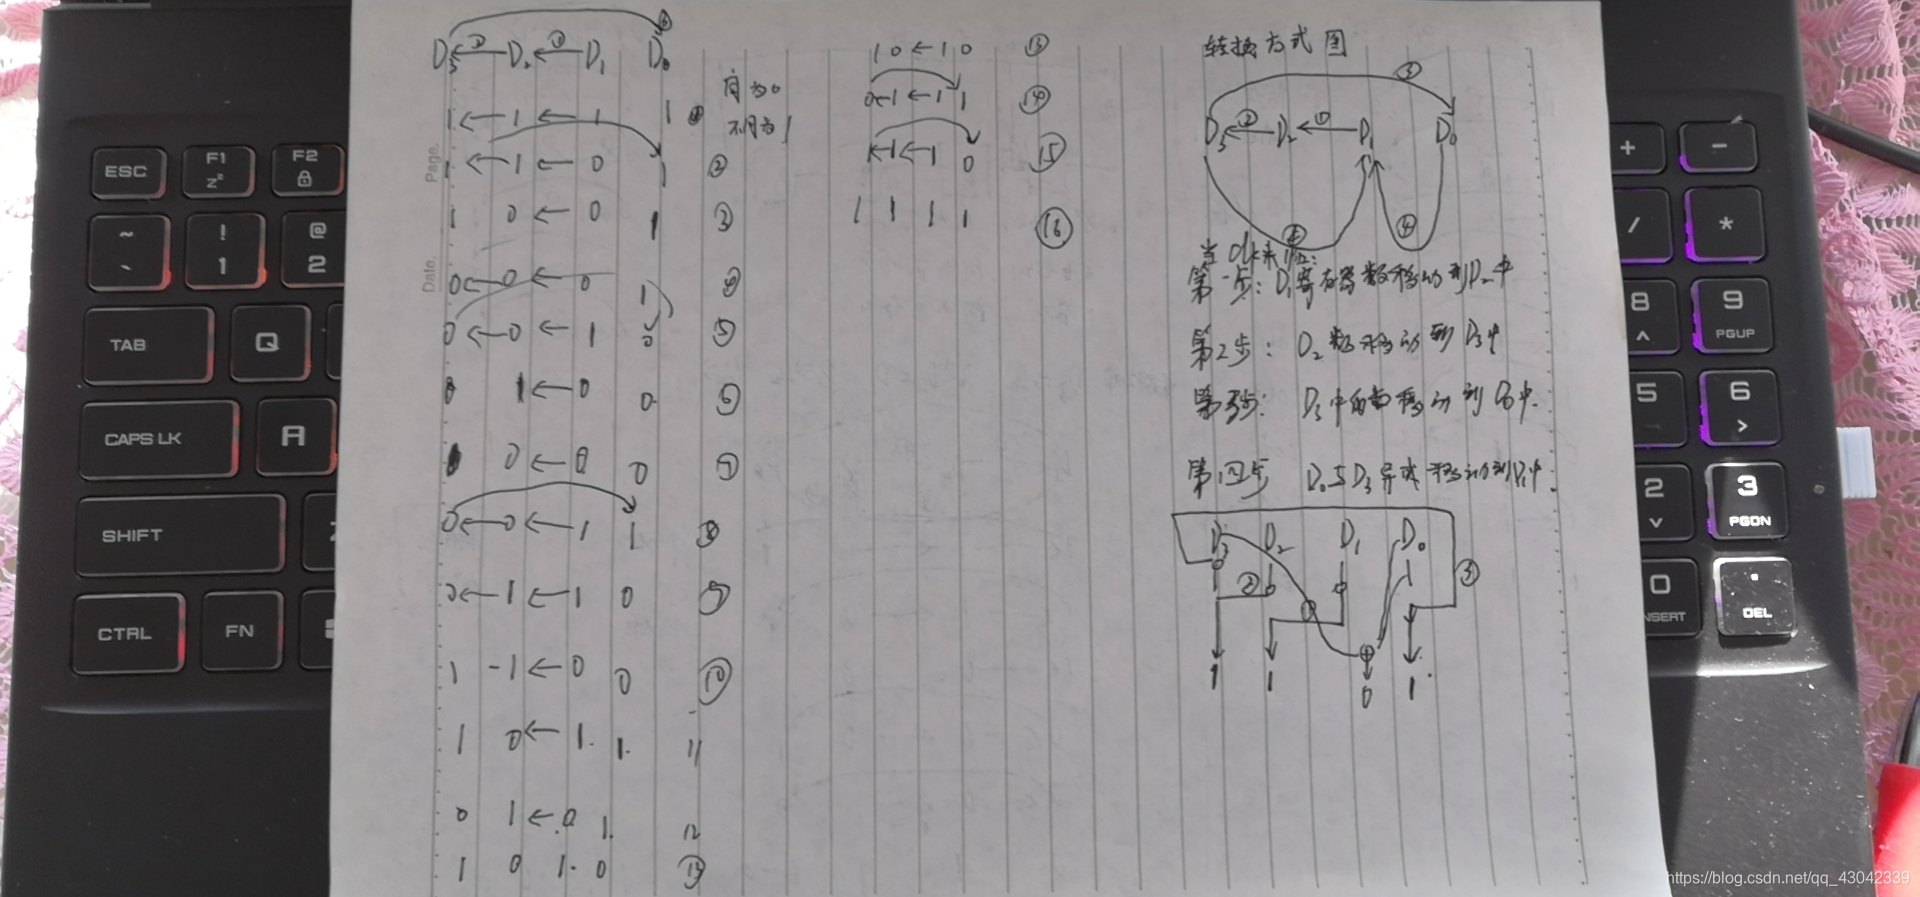 D3 ← ② D2 ← ① D1 D0 ③
1 ← 1 ← 1 1 ①
同为0
不同为1
1 ← 1 ← 0 1 ②
1 0 ← 0 1 ③
0 ← 0 ← 0 1 ④
0 ← 0 ← 1 0 ⑤
0 1 ← 0 0 ⑥
0 ← 0 0 ⑦
0 ← 0 ← 1 1 ⑧
0 ← 1 ← 1 0 ⑨
1 1 ← 0 0 ⑩
1 0 ← 1 1 11
0 1 ← 0 1 12
1 0 1 0 ⑬
1 0 ← 1 0 ⑬
0 ← 1 ← 1 1 ⑭
1 ← 1 ← 1 0 ⑮
1 1 1 1 ⑯
转换方式图
③
D3 ← ② D2 ← ① D1 D0
④
当clk来临:
第一步: D1寄存器数移动到D2中
第2步: D2数移动到D3中
第3步: D3中的数移动到D0中.
第四步 D0与D3异或移动到D1中.
D3 D2 D1 D0
1 0 0 1
② ① ③
1 1 0 1
Page.
Date.
ESC
F1
F2
~
!
1
@
2
TAB
Q
CAPS LK
A
SHIFT
Z
CTRL
FN
+
-
/
*
8
9
PGUP
5
6
2
3
PGDN
0
INSERT
.
DEL
https://blog.csdn.net/qq_43042339